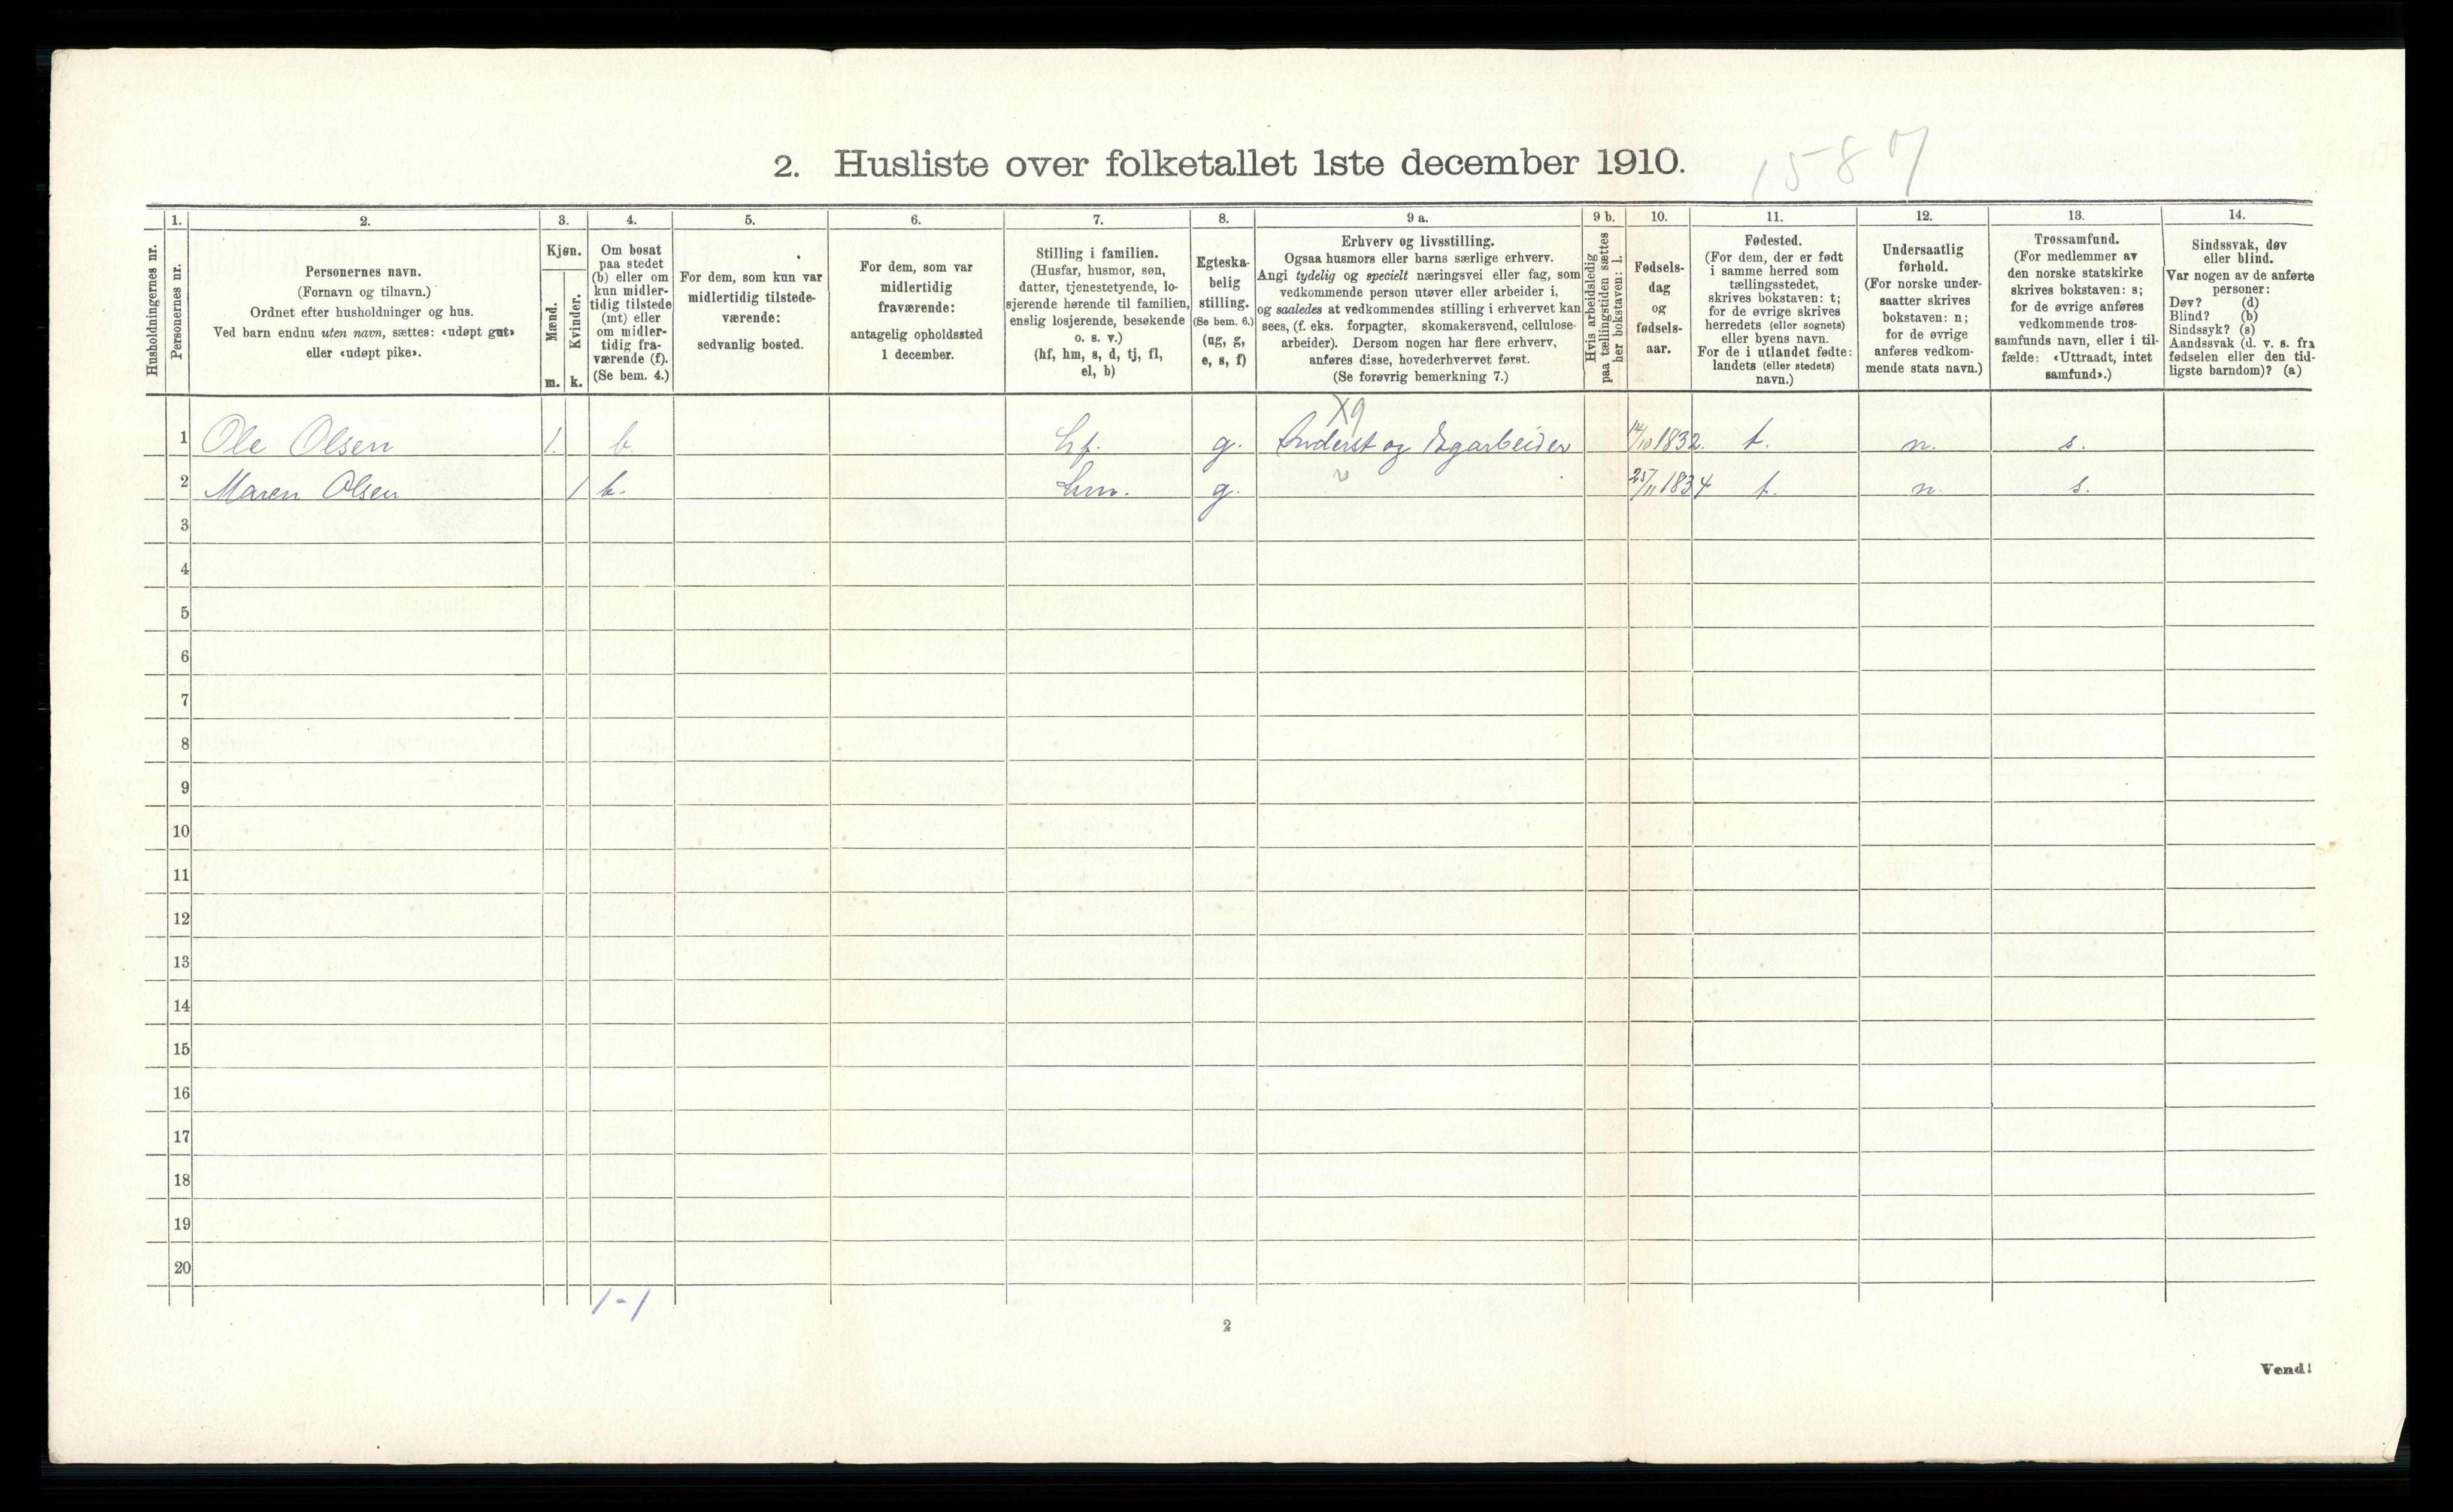 2. Husliste over folketallet 1ste december 1910.
1587
1. 2. 3. 4. 5. 6. 7. 8. 9 a. 9 b. 10. 11. 12. 13. 14.
Husholdningernes nr.
Personernes nr.
Personernes navn.
(Fornavn og tilnavn.)
Ordnet efter husholdninger og hus.
Ved barn endnu uten navn, sættes: «udøpt gut»
eller «udøpt pike».
Kjøn.
Mænd.
Kvinder.
m. k.
Om bosat
paa stedet
(b) eller om
kun midler-
tidig tilstede
(mt) eller
om midler-
tidig fra-
værende (f).
(Se bem. 4.)
For dem, som kun var
midlertidig tilstede-
værende:
sedvanlig bosted.
For dem, som var
midlertidig
fraværende:
antagelig opholdssted
1 december.
Stilling i familien.
(Husfar, husmor, søn,
datter, tjenestetyende, lo-
sjerende hørende til familien,
enslig losjerende, besøkende
o. s. v.)
(hf, hm, s, d, tj, fl,
el, b)
Egteska-
belig
stilling.
(Se bem. 6.)
(ug, g,
e, s, f)
Erhverv og livsstilling.
Ogsaa husmors eller barns særlige erhverv.
Angi tydelig og specielt næringsvei eller fag, som
vedkommende person utøver eller arbeider i,
og saaledes at vedkommendes stilling i erhvervet kan
sees, (f. eks. forpagter, skomakersvend, cellulose-
arbeider). Dersom nogen har flere erhverv,
anføres disse, hovederhvervet først.
(Se forøvrig bemerkning 7.)
Hvis arbeidsledig
paa tællingstiden sættes
her bokstaven: l.
Fødsels-
dag
og
fødsels-
aar.
Fødested.
(For dem, der er født
i samme herred som
tællingsstedet,
skrives bokstaven: t;
for de øvrige skrives
herredets (eller sognets)
eller byens navn.
For de i utlandet fødte:
landets (eller stedets)
navn.)
Undersaatlig
forhold.
(For norske under-
saatter skrives
bokstaven: n;
for de øvrige
anføres vedkom-
mende stats navn.)
Trossamfund.
(For medlemmer av
den norske statskirke
skrives bokstaven: s;
for de øvrige anføres
vedkommende tros-
samfunds navn, eller i til-
fælde: «Uttraadt, intet
samfund».)
Sindssvak, døv
eller blind.
Var nogen av de anførte
personer:
Døv? (d)
Blind? (b)
Sindssyk? (s)
Aandssvak (d. v. s. fra
fødselen eller den tid-
ligste barndom)? (a)
X9
1 Ole Olsen 1. b. hf. g. Inderst og Dagarbeider 14/10 1832. t. n. s.
2 Maren Olsen 1 b. hm. g. 25/11 1834 t. n. s.
3
4
5
6
7
8
9
10
11
12
13
14
15
16
17
18
19
20
1-1
2
Vend!